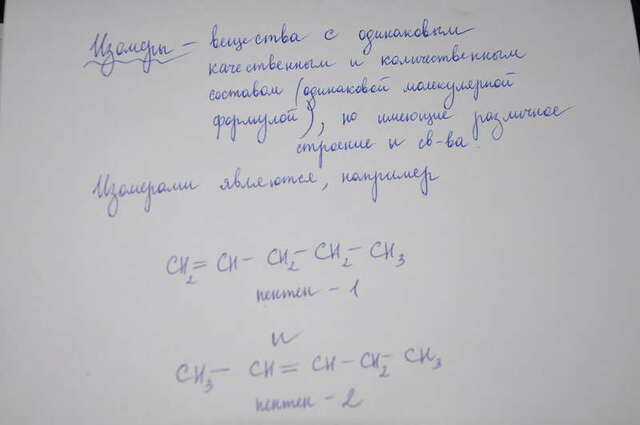 Изомеры – вещества с одинаковым
качественным и количественным
составом (одинаковой молекулярной
формулой), но имеющие различное
строение и св-ва.
Изомерами являются, например
CH₂=CH–CH₂–CH₂–CH₃
пентен – 1
и
CH₃–CH=CH–CH₂–CH₃
пентен – 2